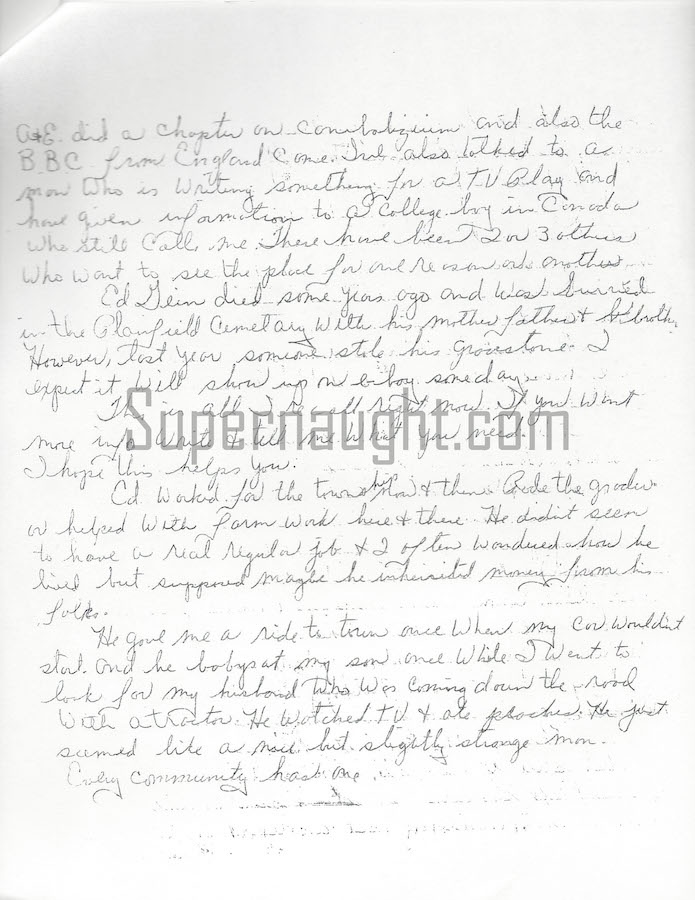 A&E. did a chapter on cannibalizium and also the
BBC from England come. I've also talked to a
man who is writing something for a TV Play and
have given information to a College boy in Canada
who still calls me. There have been 2 or 3 others
who want to see the place for one reason or another
Ed Gein died some years ago and was burried
in the Planfield Cemetary with his mother father & brother
However, last year someone stole his gravestone. I
expect it will show up on e-bay someday.
This is all I recall right now. If you want
Supernaught.com
more info write & tell me what you need.
I hope this helps you.
Ed worked for the township now & then. Rode the grader
or helped with farm work here & there. He didn't seem
to have a real regular job & I often wondered how he
lived but supposed maybe he inherited money from his
folks.
He gave me a ride to town once when my car wouldn't
start and he babysat my son once while I went to
look for my husband who was coming down the road
with a tractor. He watched TV & ate peaches. He just
seemed like a nice but slightly strange man.
Every community has one.